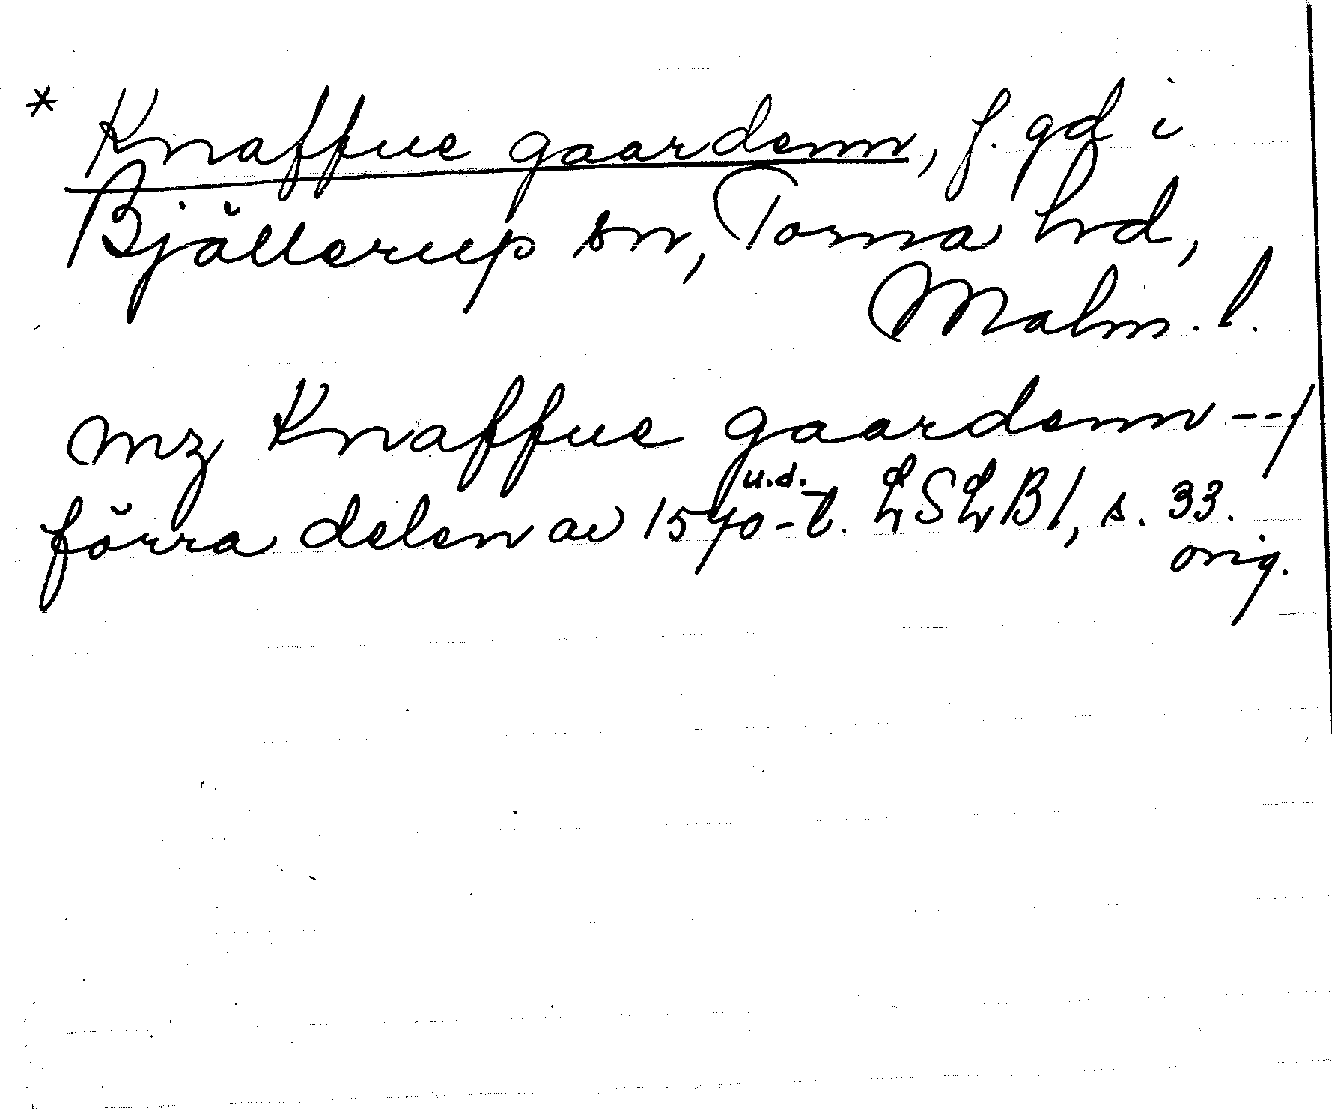 * Knaffue gaardenn, f. gd i
Bjällerup sn, Torna hd,
Malm. l.
mz Knaffue gaardenn --/
u.d.
förra delen av 1570-t. LSLB1, s. 33.
orig.